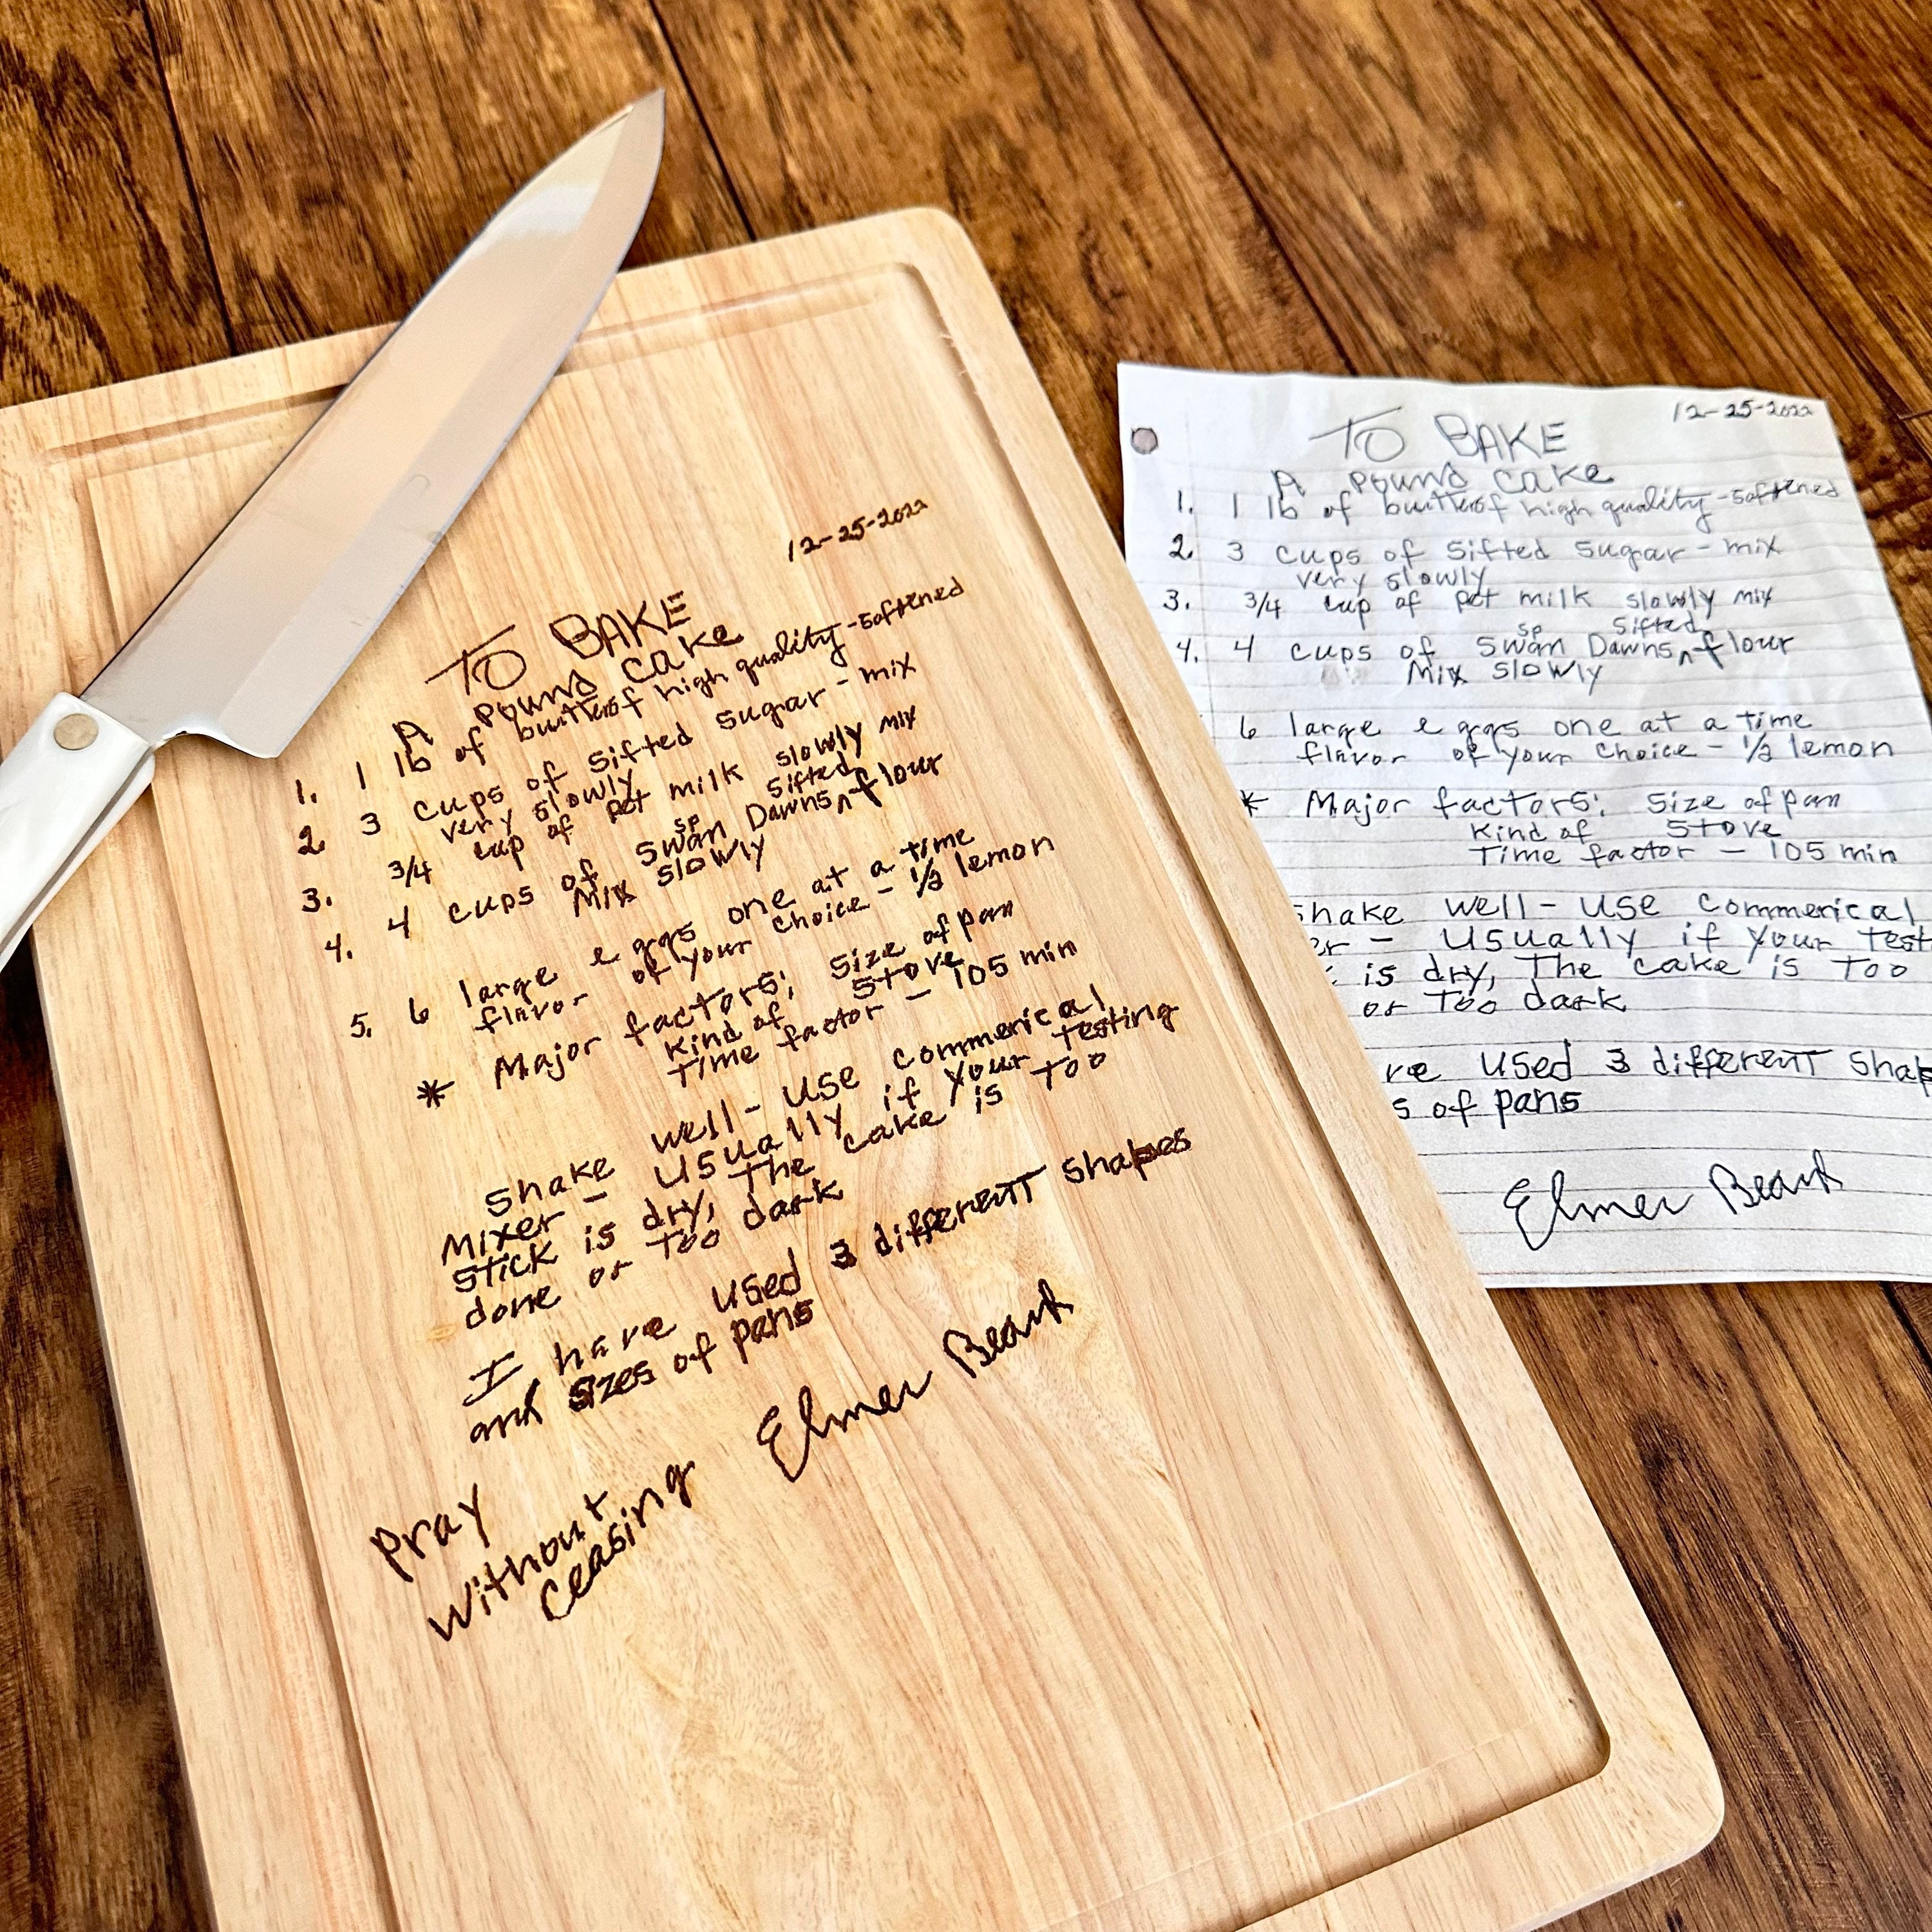 12-25-2022
TO BAKE
A pound cake
1. 1 lb of butter of high quality - softened
2. 3 cups of sifted sugar - mix
very slowly
3. 3/4 cup of pet milk slowly mix
sp sifted
4. 4 cups of Swan Dawns ^ flour
Mix slowly
5. 6 large eggs one at a time
flavor of your choice - 1/2 lemon
* Major factors: Size of pan
Kind of stove
Time factor - 105 min
Shake well - use commerical
Mixer - usually if your testing
stick is dry, The cake is too
done or too dark
I have used 3 different shapes
and sizes of pans
Elmer Beard
Pray
without
ceasing
12-25-2022
TO BAKE
A pound cake
1. 1 lb of butter of high quality - softened
2. 3 cups of sifted sugar - mix
very slowly
3. 3/4 cup of pet milk slowly mix
sp sifted
4. 4 cups of Swan Dawns ^ flour
Mix slowly
6 large eggs one at a time
flavor of your choice - 1/2 lemon
* Major factors: Size of pan
Kind of stove
Time factor - 105 min
shake well - use commerical
er - usually if your test
is dry, The cake is too
or too dark
ve used 3 different shap
s of pans
Elmer Beard